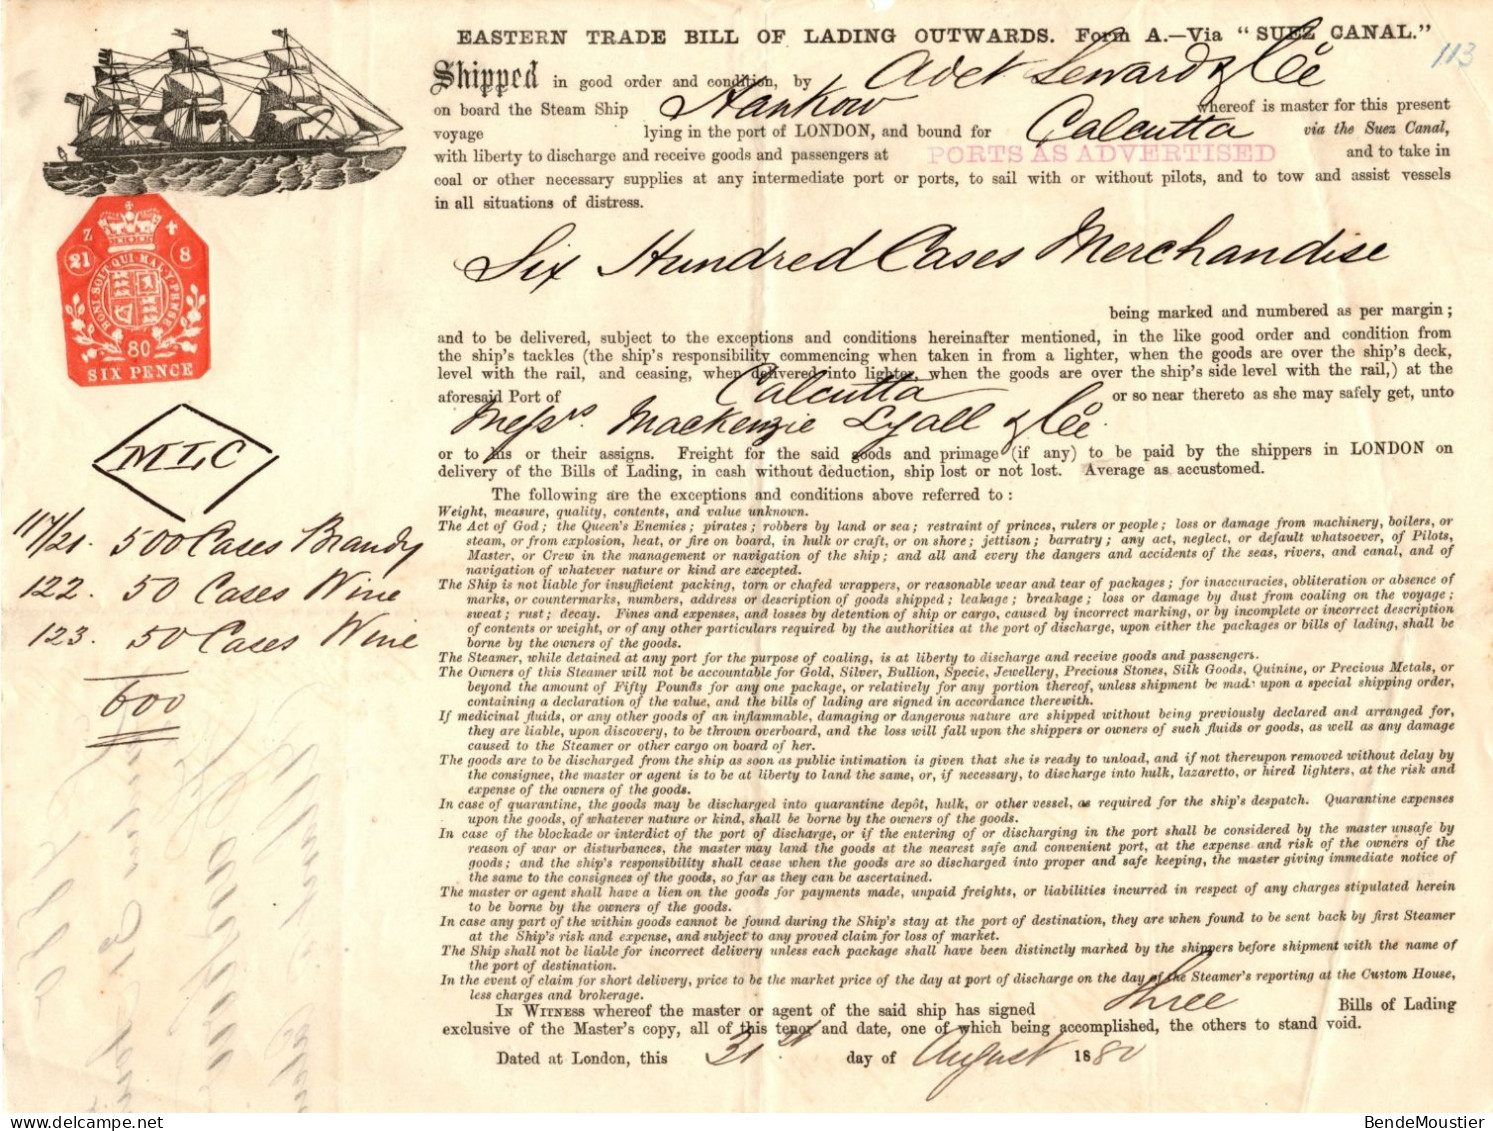 EASTERN TRADE BILL OF LADING OUTWARDS. Form A.—Via "SUEZ CANAL."
113
Shipped in good order and condition, by Adet Seward & Co
on board the Steam Ship Hankow whereof is master for this present
voyage lying in the port of LONDON, and bound for Calcutta via the Suez Canal,
with liberty to discharge and receive goods and passengers at PORTS AS ADVERTISED and to take in
coal or other necessary supplies at any intermediate port or ports, to sail with or without pilots, and to tow and assist vessels
in all situations of distress.
Z
21 8
HONI SOIT QUI MAL Y PENSE
80
SIX PENCE
Six Hundred Cases Merchandise
being marked and numbered as per margin;
and to be delivered, subject to the exceptions and conditions hereinafter mentioned, in the like good order and condition from
the ship's tackles (the ship's responsibility commencing when taken in from a lighter, when the goods are over the ship's deck,
level with the rail, and ceasing, when delivered into lighter, when the goods are over the ship's side level with the rail,) at the
aforesaid Port of Calcutta or so near thereto as she may safely get, unto
Messrs. Mackenzie Lyall & Co.
or to his or their assigns. Freight for the said goods and primage (if any) to be paid by the shippers in LONDON on
delivery of the Bills of Lading, in cash without deduction, ship lost or not lost. Average as accustomed.
MLC
117/21. 500 Cases Brandy
122. 50 Cases Wine
123. 50 Cases Wine
600
The following are the exceptions and conditions above referred to:
Weight, measure, quality, contents, and value unknown.
The Act of God; the Queen's Enemies; pirates; robbers by land or sea; restraint of princes, rulers or people; loss or damage from machinery, boilers, or
steam, or from explosion, heat, or fire on board, in hulk or craft, or on shore; jettison; barratry; any act, neglect, or default whatsoever, of Pilots,
Master, or Crew in the management or navigation of the ship; and all and every the dangers and accidents of the seas, rivers, and canal, and of
navigation of whatever nature or kind are excepted.
The Ship is not liable for insufficient packing, torn or chafed wrappers, or reasonable wear and tear of packages; for inaccuracies, obliteration or absence of
marks, or countermarks, numbers, address or description of goods shipped; leakage; breakage; loss or damage by dust from coaling on the voyage;
sweat; rust; decay. Fines and expenses, and losses by detention of ship or cargo, caused by incorrect marking, or by incomplete or incorrect description
of contents or weight, or of any other particulars required by the authorities at the port of discharge, upon either the packages or bills of lading, shall be
borne by the owners of the goods.
The Steamer, while detained at any port for the purpose of coaling, is at liberty to discharge and receive goods and passengers.
The Owners of this Steamer will not be accountable for Gold, Silver, Bullion, Specie, Jewellery, Precious Stones, Silk Goods, Quinine, or Precious Metals, or
beyond the amount of Fifty Pounds for any one package, or relatively for any portion thereof, unless shipment be made upon a special shipping order,
containing a declaration of the value, and the bills of lading are signed in accordance therewith.
If medicinal fluids, or any other goods of an inflammable, damaging or dangerous nature are shipped without being previously declared and arranged for,
they are liable, upon discovery, to be thrown overboard, and the loss will fall upon the shippers or owners of such fluids or goods, as well as any damage
caused to the Steamer or other cargo on board of her.
The goods are to be discharged from the ship as soon as public intimation is given that she is ready to unload, and if not thereupon removed without delay by
the consignee, the master or agent is to be at liberty to land the same, or, if necessary, to discharge into hulk, lazaretto, or hired lighters, at the risk and
expense of the owners of the goods.
In case of quarantine, the goods may be discharged into quarantine depôt, hulk, or other vessel, as required for the ship's despatch. Quarantine expenses
upon the goods, of whatever nature or kind, shall be borne by the owners of the goods.
In case of the blockade or interdict of the port of discharge, or if the entering of or discharging in the port shall be considered by the master unsafe by
reason of war or disturbances, the master may land the goods at the nearest safe and convenient port, at the expense and risk of the owners of the
goods; and the ship's responsibility shall cease when the goods are so discharged into proper and safe keeping, the master giving immediate notice of
the same to the consignees of the goods, so far as they can be ascertained.
The master or agent shall have a lien on the goods for payments made, unpaid freights, or liabilities incurred in respect of any charges stipulated herein
to be borne by the owners of the goods.
In case any part of the within goods cannot be found during the Ship's stay at the port of destination, they are when found to be sent back by first Steamer
at the Ship's risk and expense, and subject to any proved claim for loss of market.
The Ship shall not be liable for incorrect delivery unless each package shall have been distinctly marked by the shippers before shipment with the name of
the port of destination.
In the event of claim for short delivery, price to be the market price of the day at port of discharge on the day of the Steamer's reporting at the Custom House,
less charges and brokerage.
IN WITNESS whereof the master or agent of the said ship has signed Three Bills of Lading
exclusive of the Master's copy, all of this tenor and date, one of which being accomplished, the others to stand void.
Dated at London, this 31st day of August 1880
BendeMoustier